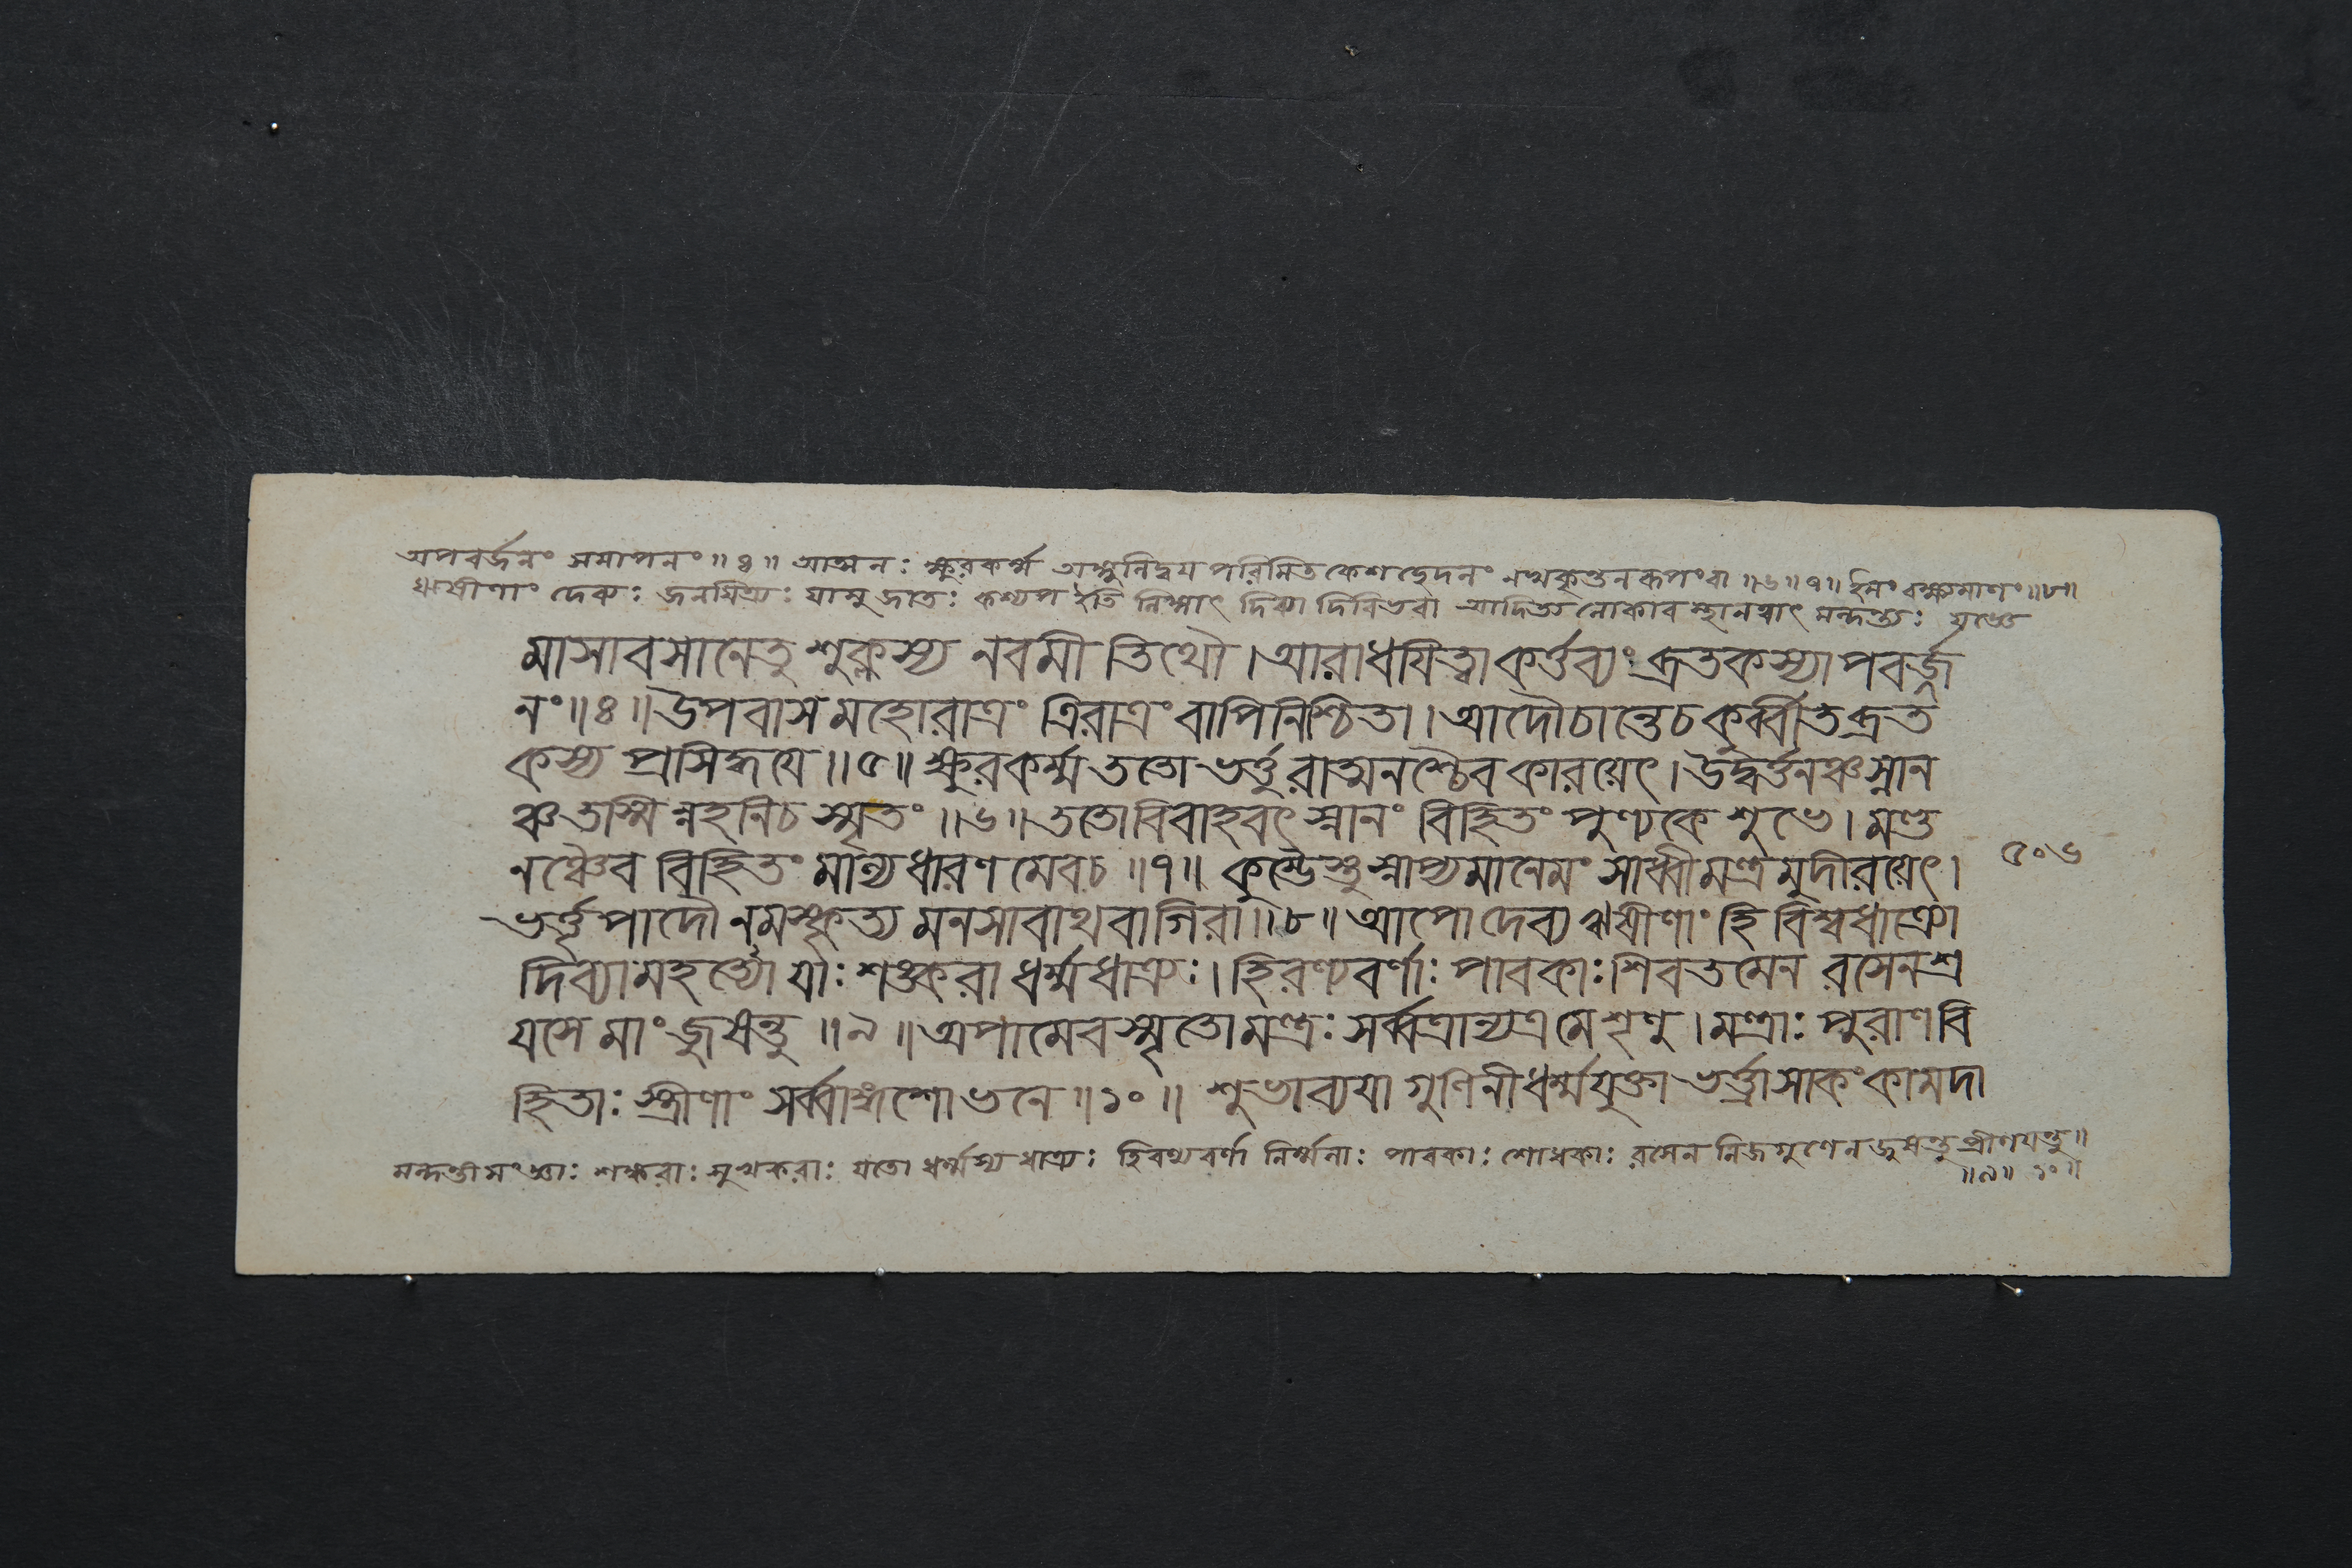 অপবর্জনং সমাপনং ॥ ৪ ॥ আত্মনঃ ক্ষুরকর্ম্ম অঙ্গুলিদ্বয়পরিমিতকেশচ্ছেদনং নখকৃন্তনরূপং বা ॥ ৬ ॥ ৭ ॥ ইমং বক্ষ্যমাণং ॥ ৮ ॥
ঋষীণাং দেব্যঃ জনয়িত্র্যঃ যাসু জাতঃ কশ্যপ ইতি লিঙ্গাৎ দিব্যা দিবিভবা আদিত্যলোকাবস্থানত্বাৎ মন্দন্ত্যঃ
মাসাবসানেতু শুক্লস্য নবমী তিথৌ । আরাধয়িত্বা কর্ত্তব্যং ব্রতকস্যাপবর্জ
নং ॥ ৪ ॥ উপবাসমহোরাত্রং ত্রিরাত্রং বাপিনিশ্চিতা । আদৌচান্তেচকুর্ব্বীতব্রত
কস্য প্রসিদ্ধয়ে ॥ ৫ ॥ ক্ষুরকর্ম্ম ততো ভর্ত্তুরাত্মনশ্চৈব কারয়েৎ । উদ্বর্ত্তনঞ্চস্নান
ঞ্চতস্মিন্নহনিচ স্মৃতং ॥ ৬ ॥ ততোবিবাহবৎ স্নানং বিহিতং পুণ্যকে শুভে । মণ্ড
নঞ্চৈব বিহিতং মাল্যধারণমেবচ ॥ ৭ ॥ কুম্ভৈস্তুস্নাপ্যমানেমং সাধ্বীমন্ত্রমুদীরয়েৎ । ৫০৬
ভর্ত্তৃপাদৌ নমস্কৃত্য মনসাবাথবাগিরা ॥ ৮ ॥ আপো দেব্য ঋষীণাং হি বিশ্বধাত্র্যো
দিব্যামহন্ত্যো যাঃ শঙ্করা ধর্ম্মধাত্র্যঃ । হিরণ্যবর্ণাঃ পাবকাঃ শিবতমেন রসেনশ্রে
য়সে মাং জুষন্তু ॥ ৯ ॥ অপামেবস্মৃতোমন্ত্রঃ সর্ব্বত্রান্যত্রমেশৃণু । মন্ত্রাঃ পুরাণবি
হিতাঃ স্ত্রীণাং সর্ব্বাঙ্গশোভনে ॥ ১০ ॥ শুভাব্যয়া গুণিনীধর্ম্মযুক্তা ভর্ত্ত্রাসাকংকামদা
শঙ্করাঃ সুখকরাঃ যতো ধর্ম্মস্য ধাত্র্যঃ হিরণ্যবর্ণা নির্ম্মলাঃ পাবকাঃ শোধকাঃ রসেন নিজগুণেন জুষন্তু প্রীণয়ন্তু ॥
॥ ৯ ॥ ১০ ॥